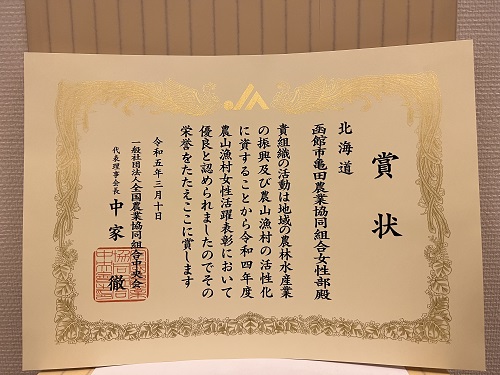 JA
賞状
北海道
函館市亀田農業協同組合女性部殿
貴組織の活動は地域の農林水産業
の振興及び農山漁村の活性化
に資することから令和四年度
農山漁村女性活躍表彰において
優良と認められましたのでその
栄誉をたたえここに賞します
令和五年三月十日
一般社団法人全国農業協同組合中央会
代表理事会長 中家 徹